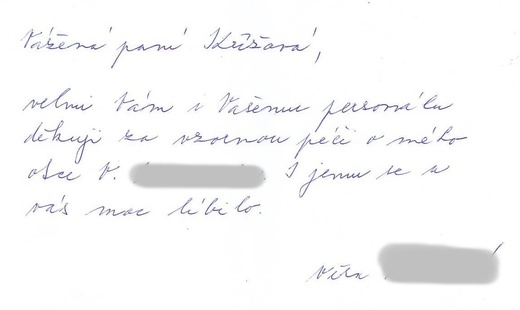 Vážená paní Křížová,
velmi Vám i Vašemu personálu
děkuji za vzornou péči o mého
otce V. I jemu se u
vás moc líbilo.
Věra